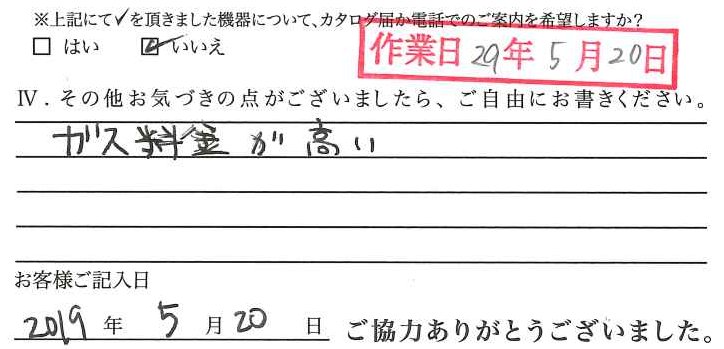 ※上記にて✓を頂きました機器について、カタログ届か電話でのご案内を希望しますか?
□ はい ☑ いいえ
作業日 29年 5月 20日
Ⅳ．その他お気づきの点がございましたら、ご自由にお書きください。
ガス料金が高い
お客様ご記入日
2019 年 5 月 20 日 ご協力ありがとうございました。